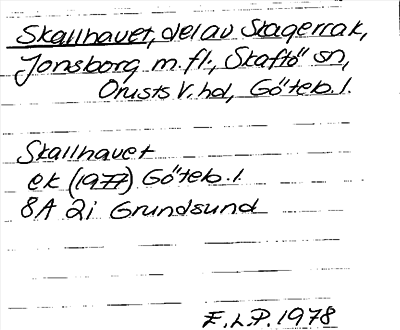 Skallhavet, del av Skagerrak,
Jonsborg m.fl., Skaftö sn,
Orusts V. hd, Göteb. l.
Skallhavet
ek (1977) Göteb. l.
8A 2i Grundsund
F.L.P. 1978